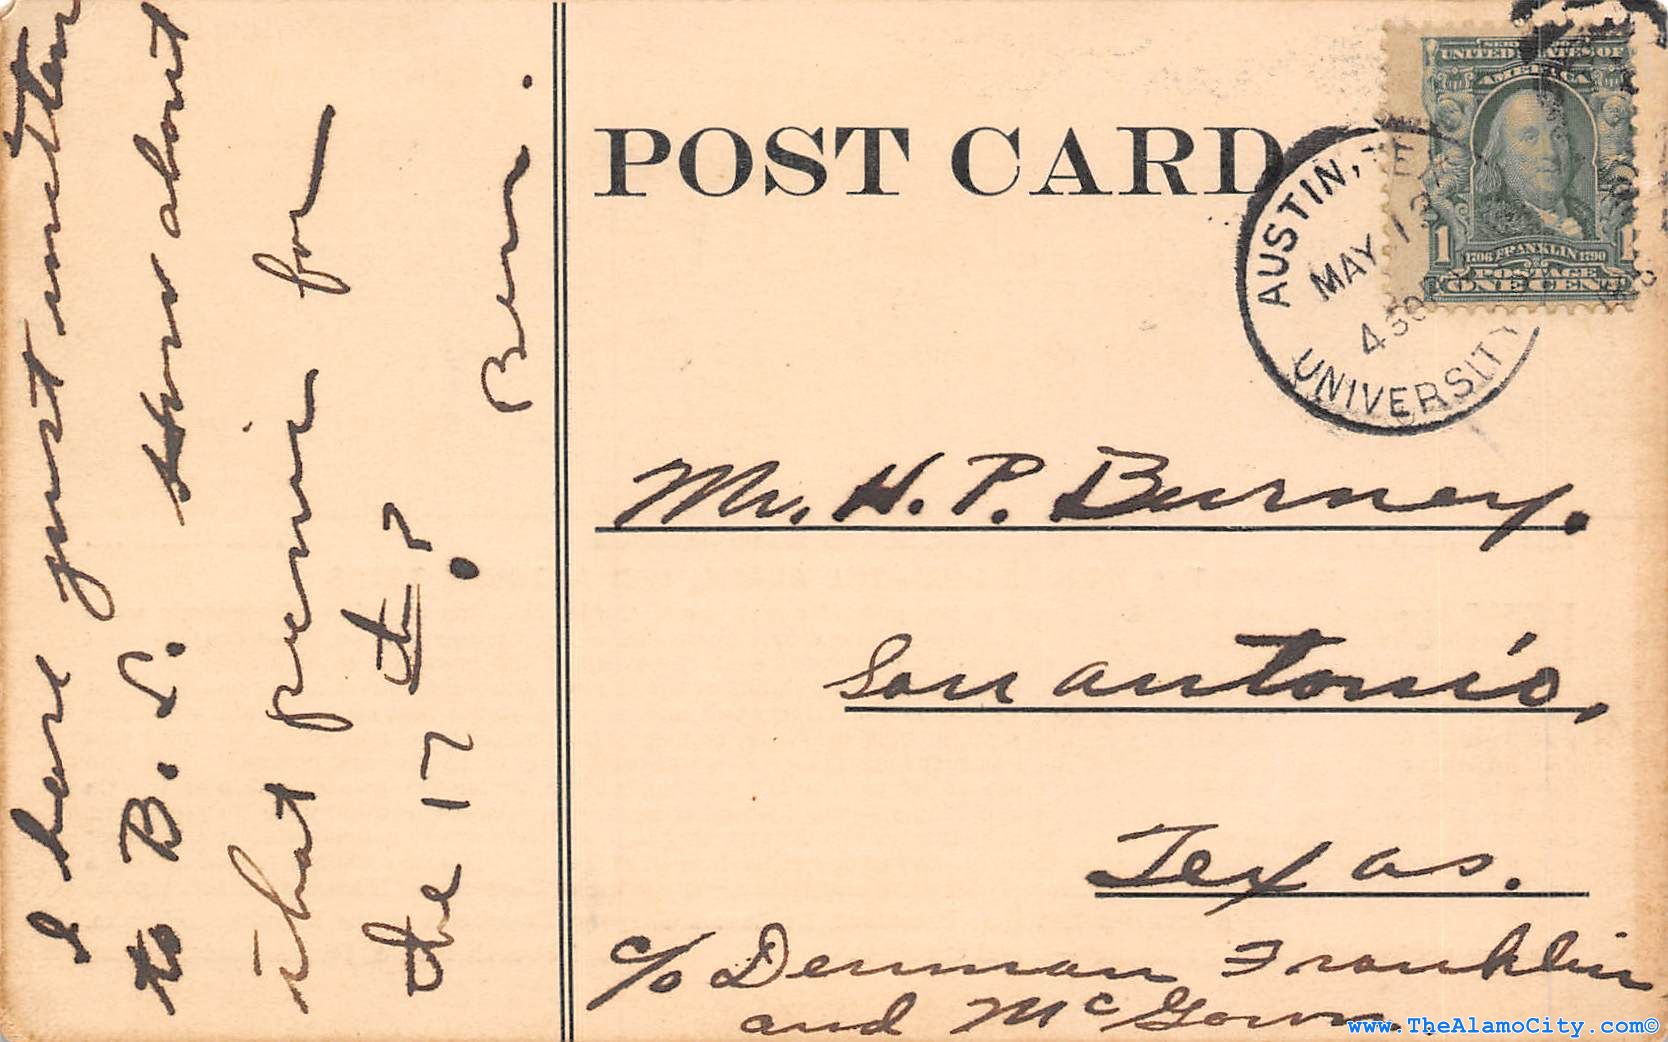 I have just written
to B. L. How about
that permit for
the 17th?
Ben.
POST CARD
AUSTIN,
MAY 13
430
UNIVERSITY
SERIES 1902
UNITED STATES OF
AMERICA
1 1
1706 FRANKLIN 1790
POSTAGE
ONE CENT
Mr. H. P. Burney.
San Antonio,
Texas.
c/o Denman Franklin
and McGown.
www.TheAlamoCity.com©